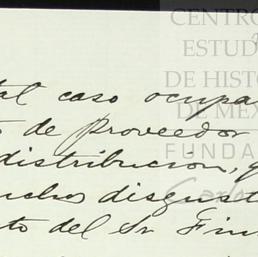 CENTRO
ESTUD
DE HISTO
DE MÉX
FUNDA
Carlos
tal caso ocupa
de proveedor
distribucion,
uchos disgust
to del Sr Fin